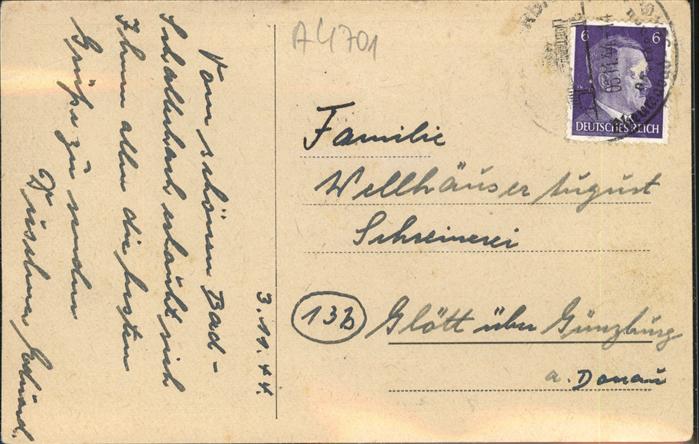 A4701
6 6
DEUTSCHES REICH
Familie
Wellhäuser August
Schreinerei
13b Glött über Günzburg
a. Donau
3.10.44.
Vom schönen Bad-
Schallerbach erlaubt sich
Ihnen allen die besten
Grüße zu senden